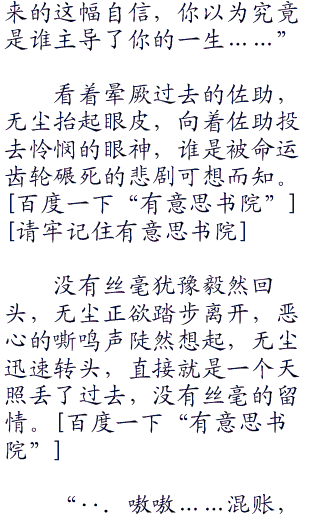 来的这幅自信，你以为究竟
是谁主导了你的一生……”
看着晕厥过去的佐助，
无尘抬起眼皮，向着佐助投
去怜悯的眼神，谁是被命运
齿轮碾死的悲剧可想而知。
[百度一下“有意思书院”]
[请牢记住有意思书院]
没有丝毫犹豫毅然回
头，无尘正欲踏步离开，恶
心的嘶鸣声陡然想起，无尘
迅速转头，直接就是一个天
照丢了过去，没有丝毫的留
情。[百度一下“有意思书
院”]
“··．嗷嗷……混账，